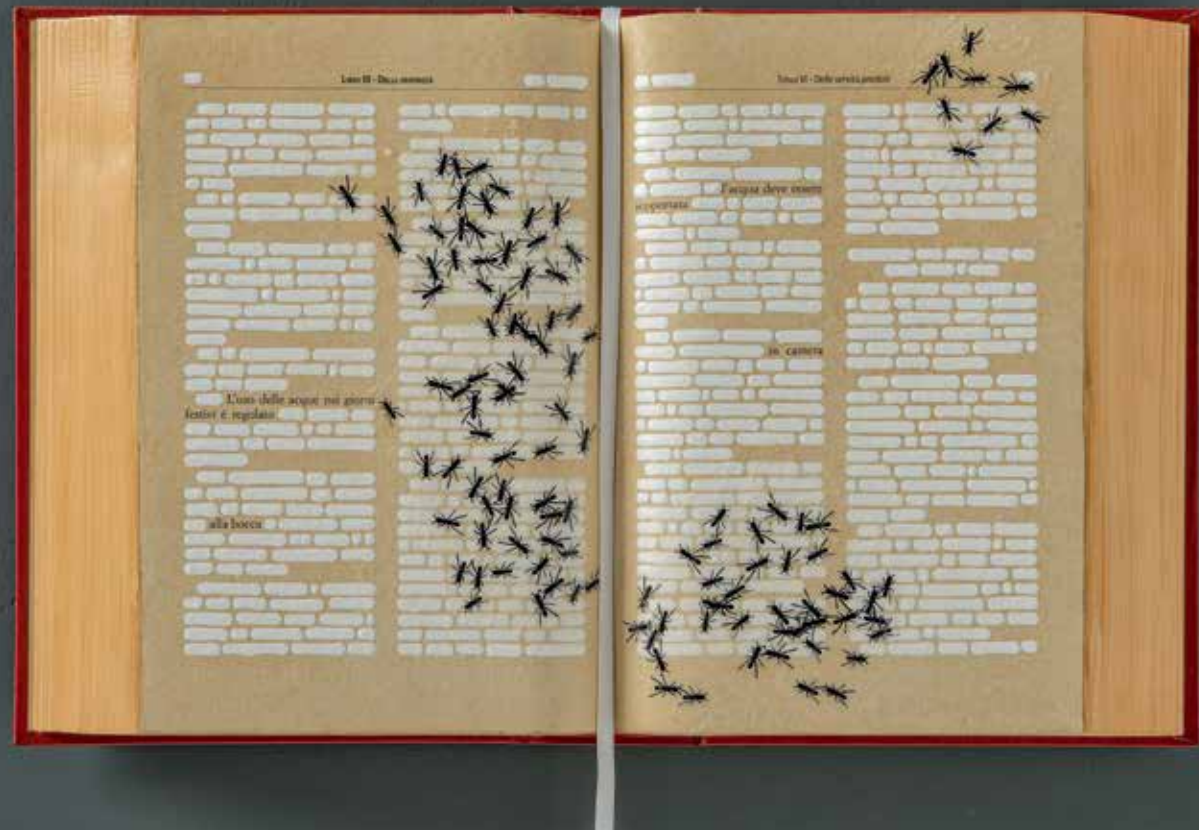 Libro III - Della proprietà
L'uso delle acque nei giorni
festivi è regolato
alla bocca
Titolo VI - Delle servitù prediali
l'acqua deve essere
scoperata
in camera